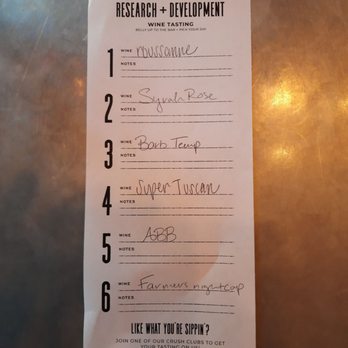 RESEARCH + DEVELOPMENT
WINE TASTING
BELLY UP TO THE BAR + PEN YOUR SIP!
1 WINE roussanne
NOTES
2 WINE Syrah Rose
NOTES
3 WINE Barb Temp
NOTES
4 WINE Super Tuscan
NOTES
5 WINE ABB
NOTES
6 WINE Farmers nightcap
NOTES
LIKE WHAT YOU'RE SIPPIN'?
JOIN ONE OF OUR CRUSH CLUBS TO GET
YOUR TASTING ON US!